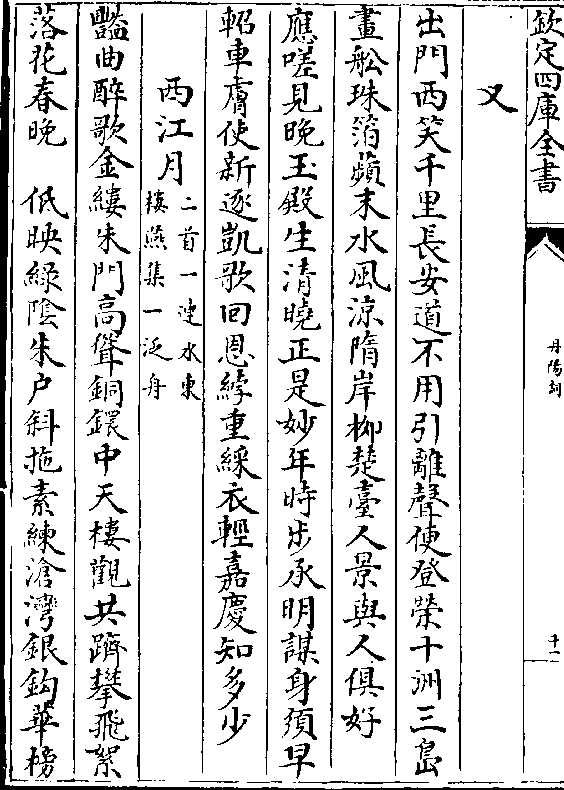 欽定四庫全書
丹陽詞
十一
又
出門西笑千里長安道不用引離聲便登榮十洲三島
畫舩珠箔蘋末水風涼隋岸柳楚臺人景與人俱好
應嗟見晚玉殿生清曉正是妙年時步承明謀身須早
軺車膚使新逐凱歌回恩綍重綵衣輕嘉慶知多少
西江月二首一漣水東
樓燕集一泛舟
豔曲醉歌金縷朱門高聳銅鐶中天樓觀共躋攀飛絮
落花春晚　低映綠陰朱户斜拖素練滄灣銀鈎華榜